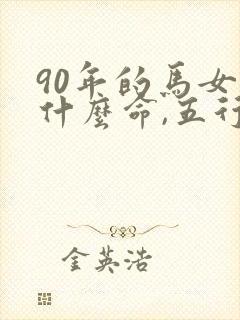 90年的馬女
什麼命,五行
金英浩